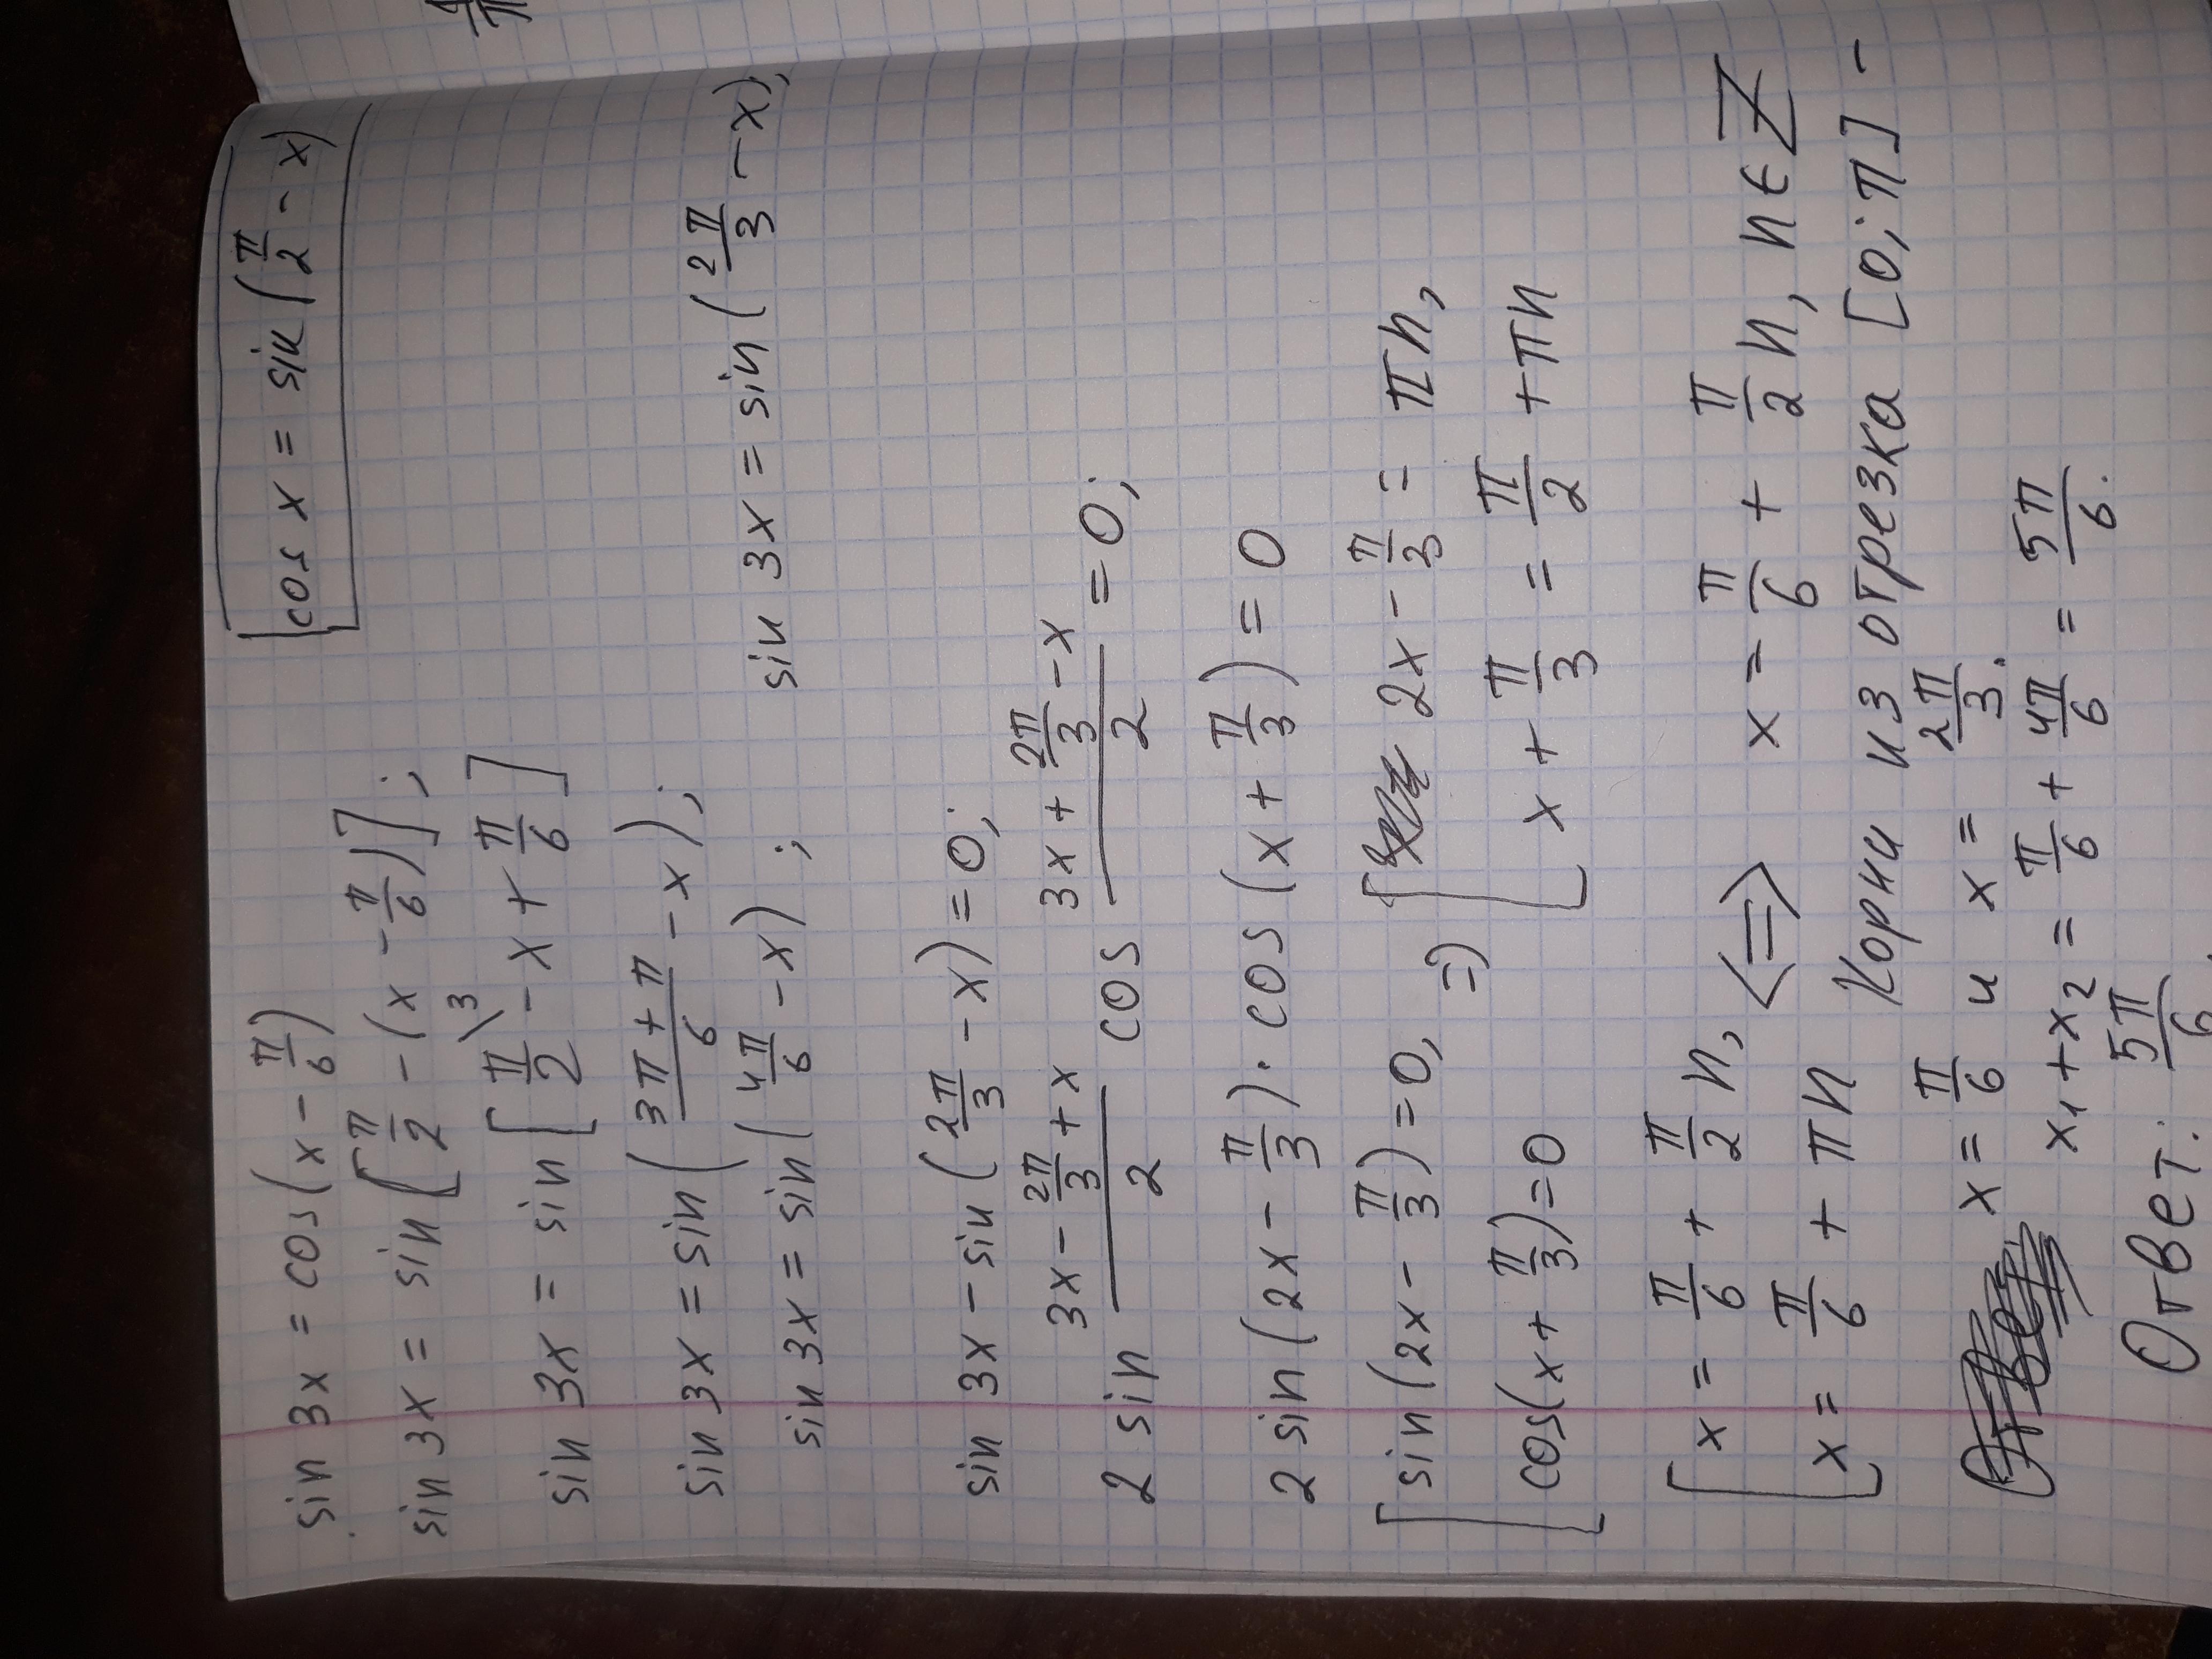 sin 3x = cos(x - π/6) [cos x = sin(π/2 - x)]
sin 3x = sin[π/2 - (x - π/6)];
sin 3x = sin[π/2 \3 - x + π/6]
sin 3x = sin((3π + π)/6 - x);
sin 3x = sin(4π/6 - x); sin 3x = sin(2π/3 - x);
sin 3x - sin(2π/3 - x) = 0;
2 sin (3x - 2π/3 + x)/2 cos (3x + 2π/3 - x)/2 = 0;
2 sin(2x - π/3) · cos(x + π/3) = 0
[sin(2x - π/3) = 0, => [2x - π/3 = πn,
[cos(x + π/3) = 0 [x + π/3 = π/2 + πn
[x = π/6 + π/2 n, <=> x = π/6 + π/2 n, n ∈ Z
[x = π/6 + πn Корни из отрезка [0; π] -
x = π/6 и x = 2π/3.
x₁ + x₂ = π/6 + 4π/6 = 5π/6.
Ответ: 5π/6.